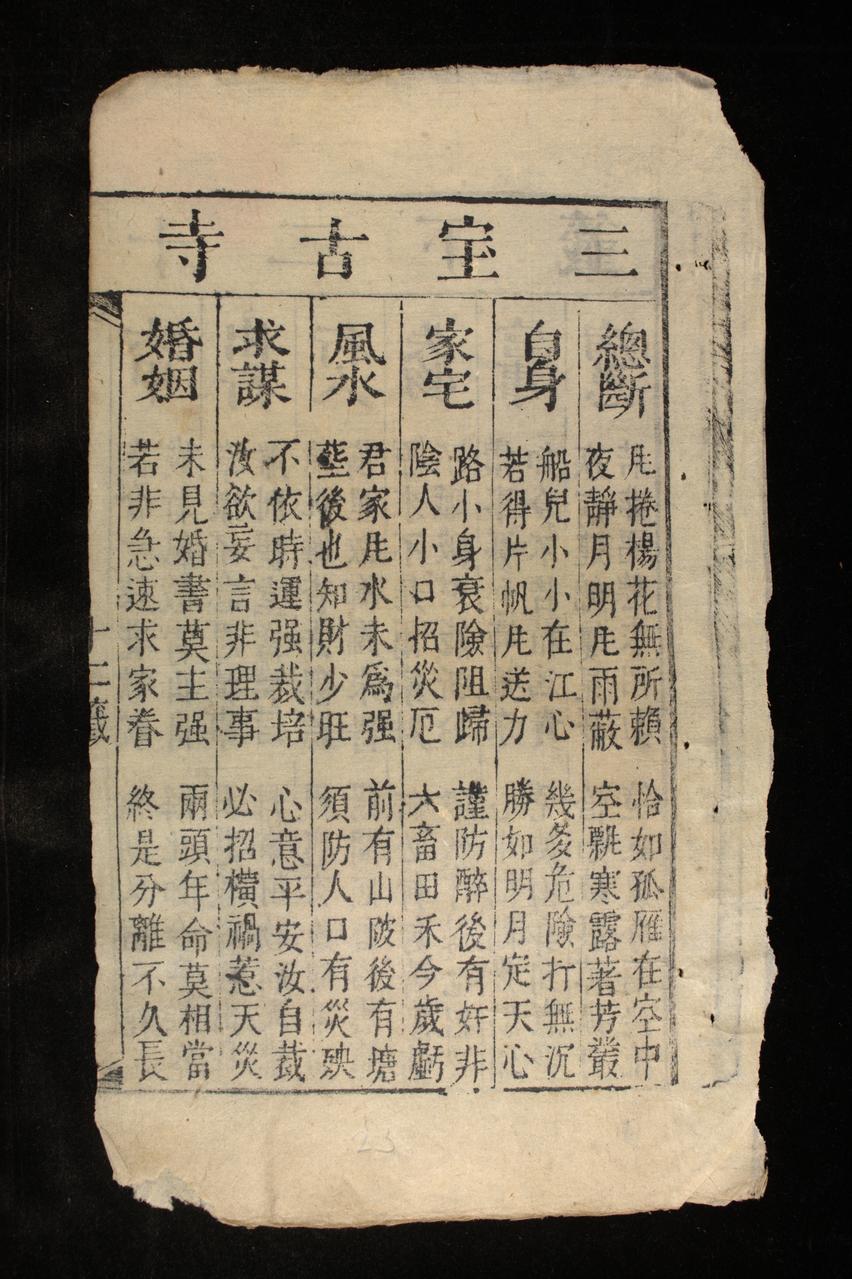 三宝古寺
總斷
凨捲楊花無所賴 恰如孤雁在空中
夜靜月明凨雨蔽 空飄寒露著芳叢
自身
船兒小小在江心 幾多危險打無沉
若得片帆凨送力 勝如明月定天心
家宅
路小身衰險阻歸 謹防醉後有奸非
陰人小口招災厄 六畜田禾今歲虧
風水
君家凨水未爲强 前有山陂後有塘
塟後也知財少旺 須防人口有災殃
求謀
不依時運强裁培 心意平安汝自裁
汝欲妄言非理事 必招橫禍惹天災
婚姻
未見婚書莫主强 兩頭年命莫相當
若非急速求家眷 終是分離不久長
十二籤
23